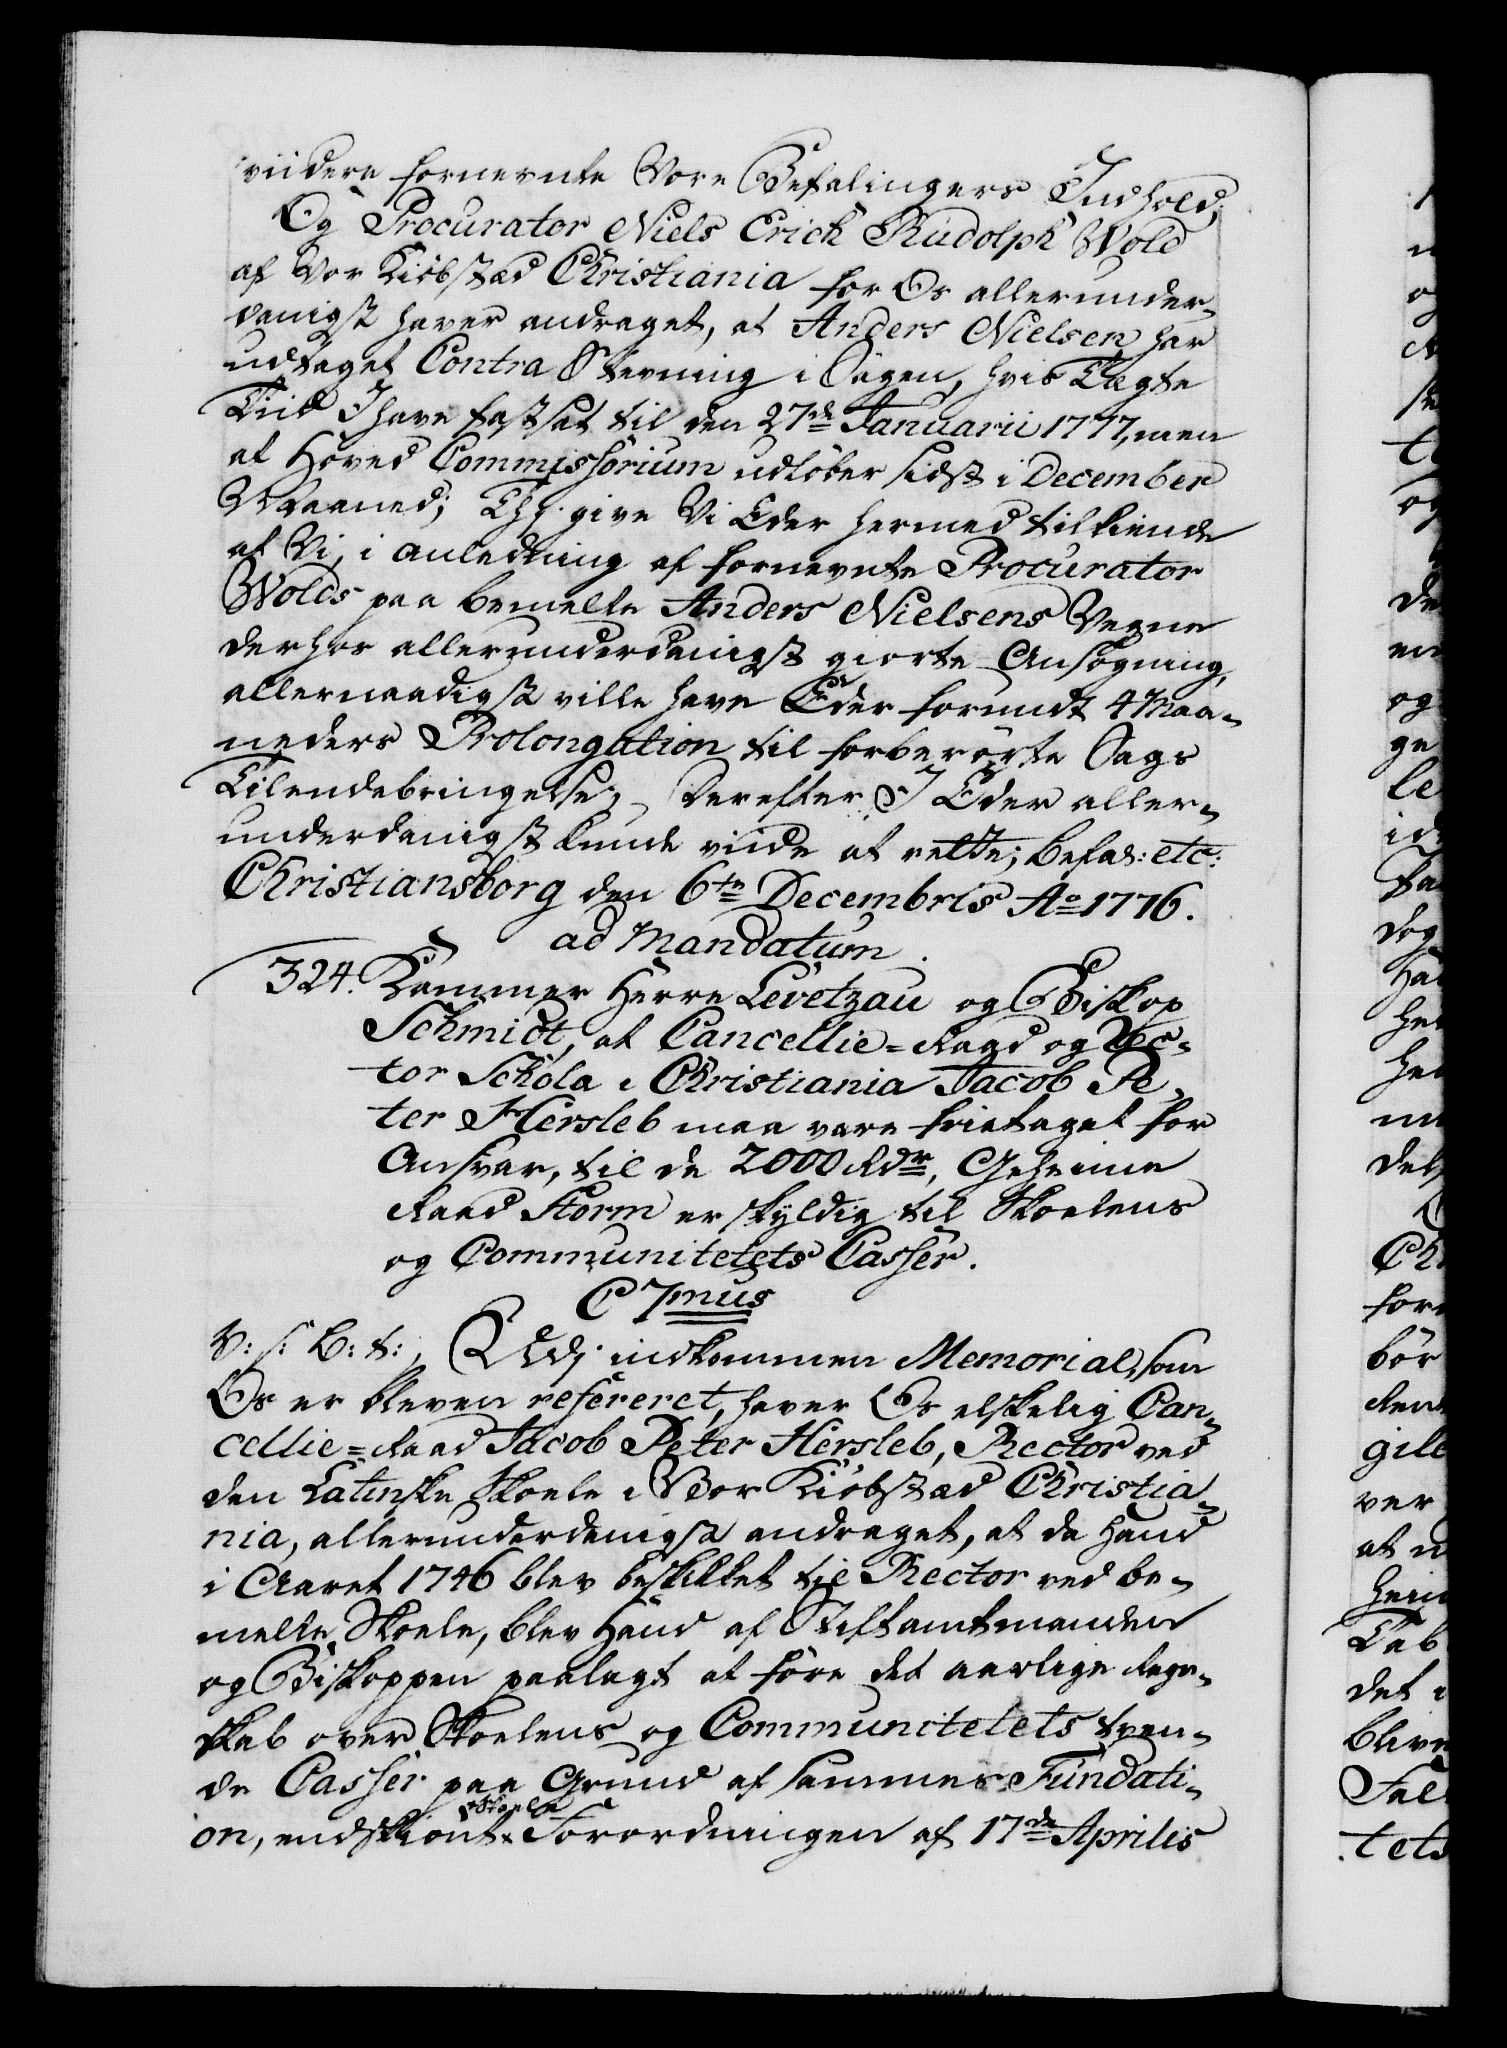 viidere fornevnte Vore Befalingers Indhold;
Og Procurator Niels Erich Rudolph Wold
af Vor Kiöbstæd Christiania for Os allerunder-
danigst haver andraget, at Anders Nielsen har
udtaget Contra Stevning i Sagen, hvis Tægte
Tiid I have fastsat til den 27de Januarii 1777, men
at Hoved Commissorium udlöber sidst i December
Maaned; Thi give Vi Eder hermed tilkiende
at Vi, i anledning af fornevnte Procurator
Wolds paa bemelte Anders Nielsens Vegne
derhos allerunderdanigst giorte Ansögning,
allernaadigst ville have Eder forundt 4 Maa-
neders Prolongation til forberörte Sags
Tilendebringelse; Derefter I Eder aller-
underdanigst kunde viide at rette; Befal: etc:
Christiansborg den 6te Decembris Ao 1776.
ad Mandatum.
324. Kammer Herre Levetzau og Biskop
Schmidt, at Cancellie-Raad og Rec-
tor Schola i Christiania Jacob Pe-
ter Hersleb maa være frietaget for
Ansvar, til de 2000 Rdr, Geheime
Raad Storm er skyldig til Skoelens
og Communitetets Casser.
C 7mus
V: s: B: t:, Udi indkommen Memorial, som
Os er bleven refereret, haver Os elskelig Can-
cellie-Raad Jacob Peter Hersleb, Rector ved
den Latinske Skoele i Vor Kiöbstæd Christia-
nia, allerunderdanigst andraget, at da hand
i Aaret 1746 blev beskikket til Rector ved be-
melte Skoele, blev Hand af Stiftamtmanden
og Biskoppen paalagt at före det aarlige Regn-
skab over Skoelens og Communitetets tven-
de Casser paa Grund af sammes Fundati-
on, endskiönt Skoele Forordningen af 17de Aprilis